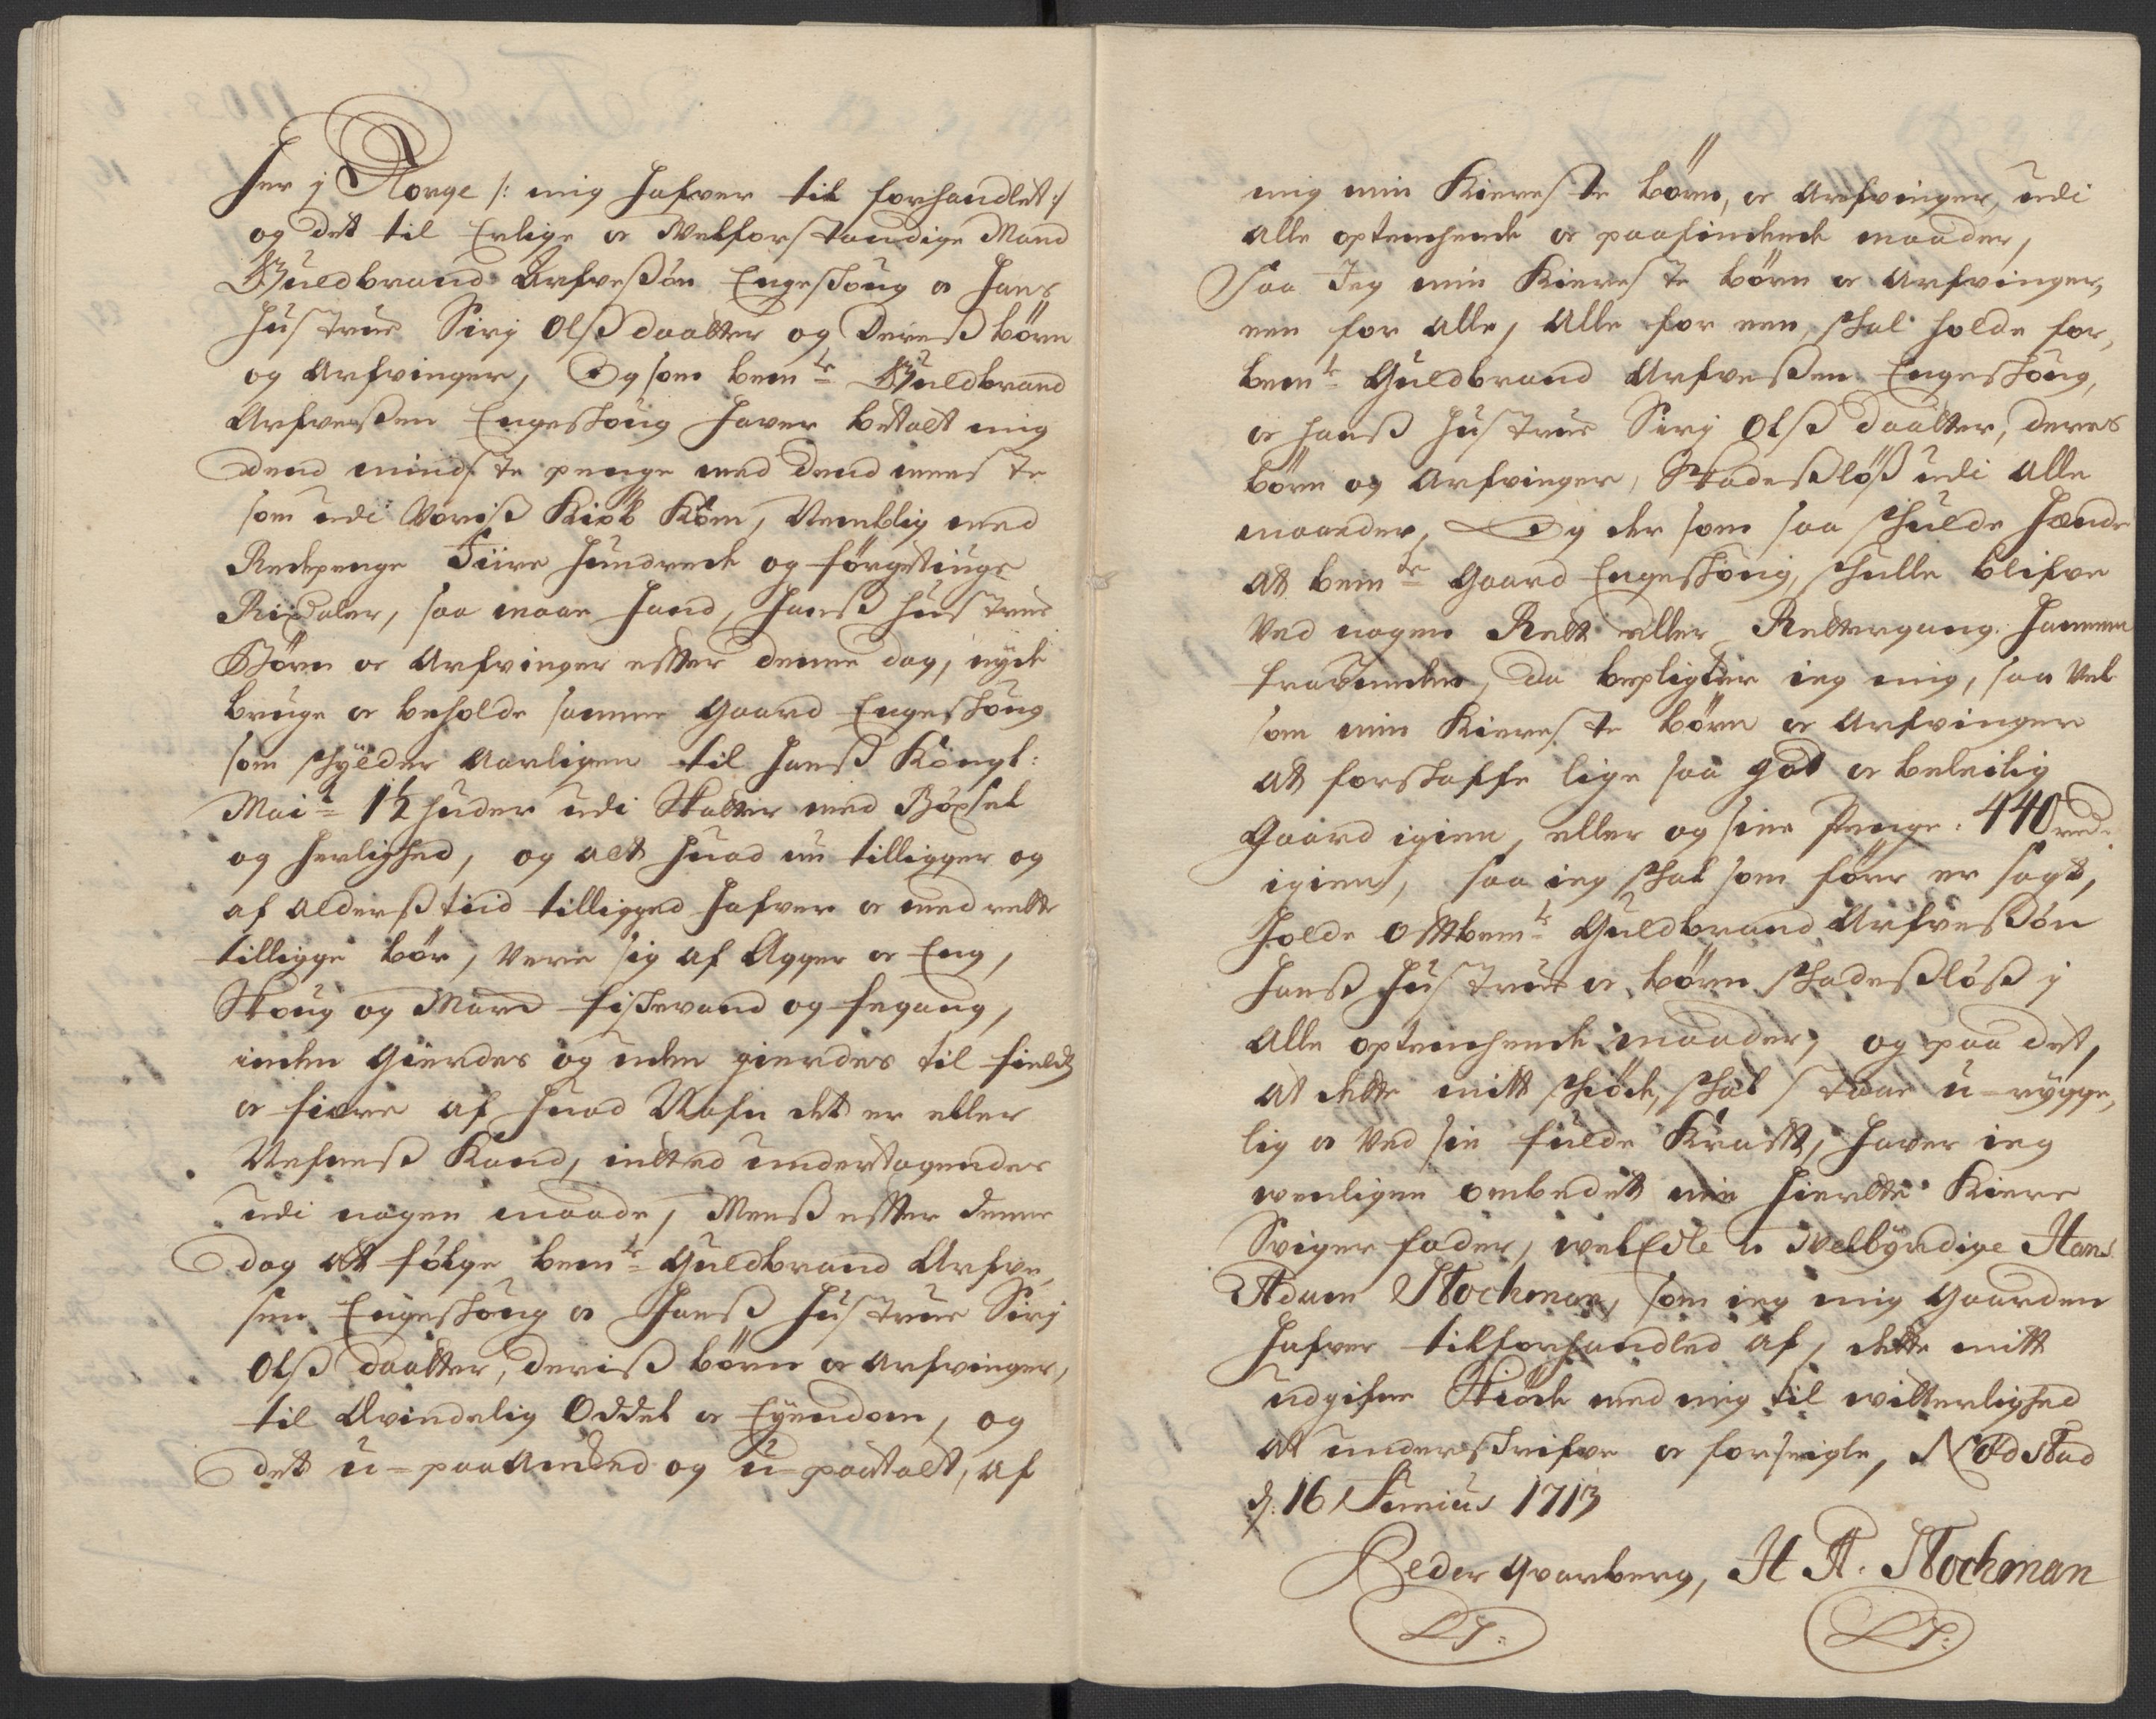 her j Norge /: mig hafver til forhandlet :/
og det til Erlige oc Welforstandige Mand
Guldbrand Arfvesßön Engeskoug oc hans
hustrue Sirj Olsdaatter og Deres börn
og Arfvinger, Og som bem:te Guldbrand
Arfvesßen Engeskoug haver betalt mig
dend mindste penge med dend meeste
som udi Voriß Kiöb Kom, Nemblig med
Redepenge Fiire hundrede og förgetiuge
Rixdaler, saa maae hand, hanß hustrue
Börn oc Arfvinger efter denne dag, nyde
bruge oc beholde samme Gaard Engeskoug
som skylder Aarligen til hanß Kongl:
Mai:t 1½ huder udi Skatter med Böxsel
og herlighed, og alt huad nu tilligger og
af Alderß tiid tilligged hafver oc med rette
tilligge bör, være sig af Agger oc Eng,
Skoug og Marck fiskevand og fegang,
inden Gierdes og uden gierdes til fields
oc fiære af huad Nafn det er eller
Nefneß Kand, inted undertagendes
udi nogen maade, Menß efter denne
dag at fölge bem:te Guldbrand Arfve-
sen Engeskoug oc hanß hustrue Sirj
Olß daatter, deriß börn oc arfvinger,
til Ævindelig Oddel oc Eyendom, og
det u-paaancked og u-paatalt, af
mig min Kiereste börn, oc Arfvinger, udi
alle optenchende oc paafindende maader,
Saa Jeg min Kiereste börn oc Arfvinger,
een for alle, alle for een, skal holde for-
bem:te Guldbrand Arfvesßen Engeskoug,
oc hanß hustrue Sirj Olß daatter, deres
börn og Arfvinger, Skadeßlöß udi alle
maader, Og der som saa skulde hænde
at bem:te Gaard Engeskoug, skulle blifve
ved nogen Rett eller Rettergang hannem
fravunden, da bepligter ieg mig, saa vel
som min Kiereste börn oc Arfvinger
at forskaffe lige saa god oc beleilig
Gaard igien, eller og sine Penge: 440 rd:
igien, saa ieg skal som förr er sagt,
holde oftbem:te Guldbrand Arfvesßön
hanß hustrue oc börn skadeßlöß j
alle optenchende maader, og paa det,
at dette mitt skiöde, skal staae u-rygge-
lig oc ved sin fulde Krafft, haver ieg
wenligen ombedet min hierte Kiere
Sviger fader, welEdle oc Velbyrdige Hans
Adam Stockman, som ieg mig Gaarden
hafver tilforhandled af, dette mitt
udgifne Skiöde med mig til witterlighed
at underskrifve oc forseigle, Nodstad
d: 16 Junius 1713
Peder Qvarberg, H A. Stockman
LS: LS: